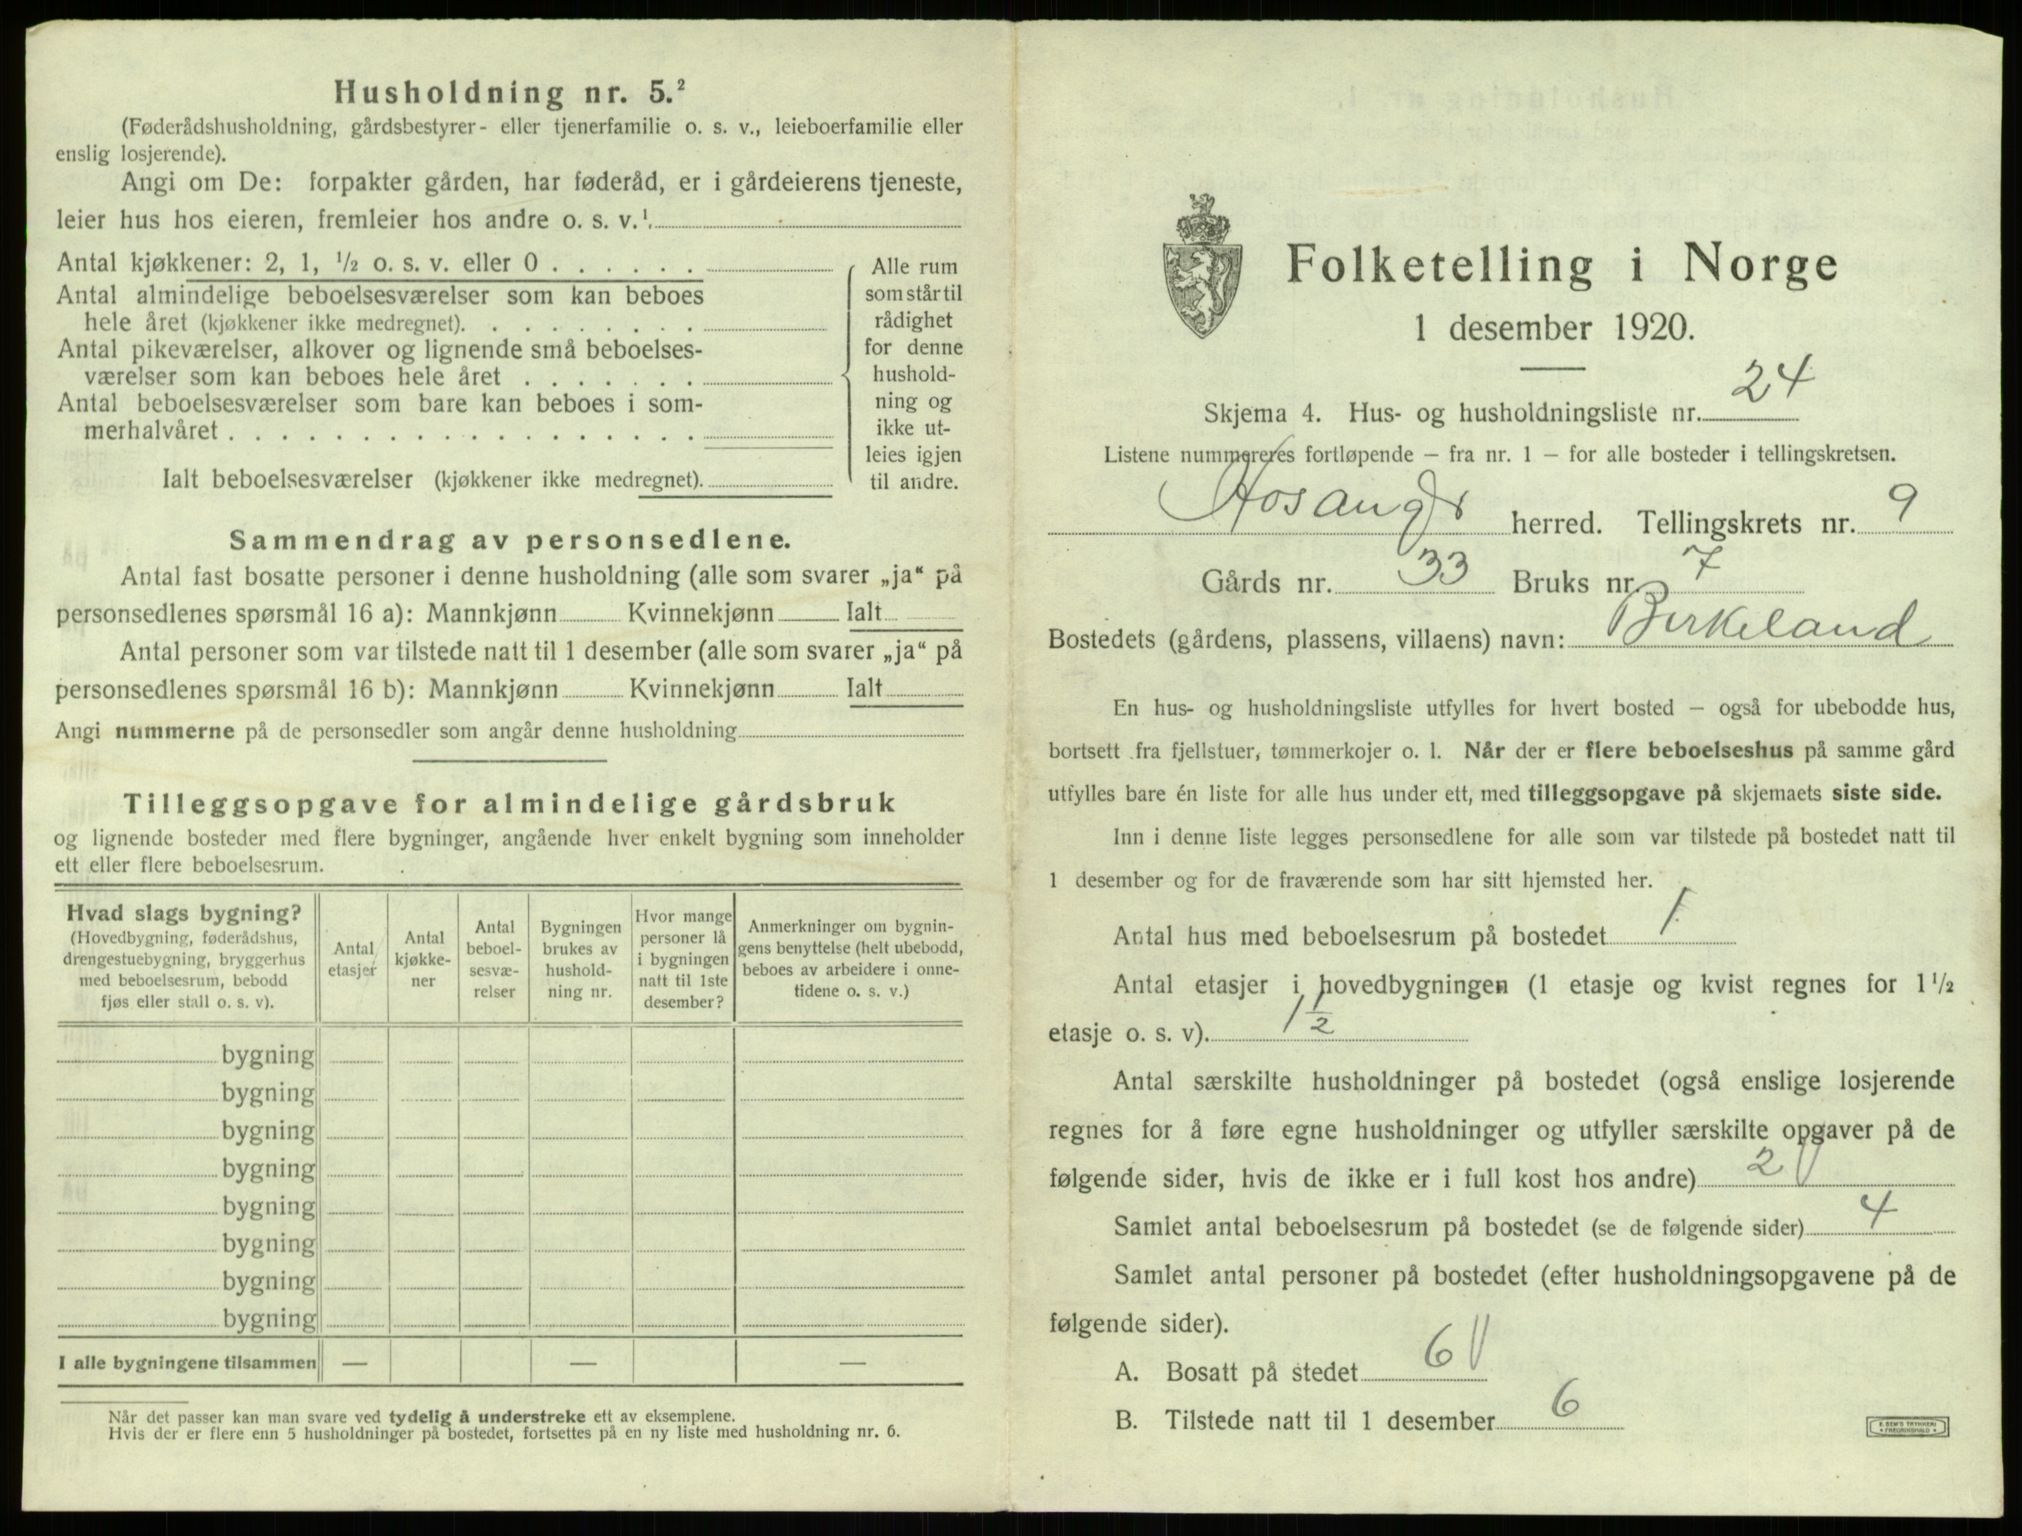 Husholdning nr. 5.²
(Føderådshusholdning, gårdsbestyrer- eller tjenerfamilie o. s. v., leieboerfamilie eller
enslig losjerende).
Angi om De: forpakter gården, har føderåd, er i gårdeierens tjeneste,
leier hus hos eieren, fremleier hos andre o. s. v.¹
Antal kjøkkener: 2, 1, ½ o. s. v. eller 0 . . . . . .
Antal almindelige beboelsesværelser som kan beboes
hele året (kjøkkener ikke medregnet). . . . . . . . .
Antal pikeværelser, alkover og lignende små beboelses-
værelser som kan beboes hele året . . . . . . .
Antal beboelsesværelser som bare kan beboes i som-
merhalvåret . . . . . . . . . . . . . . . . . .
Ialt beboelsesværelser (kjøkkener ikke medregnet).
Alle rum
som står til
rådighet
for denne
hushold-
ning og
ikke ut-
leies igjen
til andre.
Sammendrag av personsedlene.
Antal fast bosatte personer i denne husholdning (alle som svarer „ja“ på
personsedlenes spørsmål 16 a): Mannkjønn Kvinnekjønn Ialt
Antal personer som var tilstede natt til 1 desember (alle som svarer „ja“ på
personsedlenes spørsmål 16 b): Mannkjønn Kvinnekjønn Ialt
Angi nummerne på de personsedler som angår denne husholdning
Tilleggsopgave for almindelige gårdsbruk
og lignende bosteder med flere bygninger, angående hver enkelt bygning som inneholder
ett eller flere beboelsesrum.
Hvad slags bygning?
(Hovedbygning, føderådshus,
drengestuebygning, bryggerhus
med beboelsesrum, bebodd
fjøs eller stall o. s. v).
Antal
etasjer
Antal
kjøkke-
ner
Antal
beboel-
sesvæ-
relser
Bygningen
brukes av
hushold-
ning nr.
Hvor mange
personer lå
i bygningen
natt til 1ste
desember?
Anmerkninger om bygnin-
gens benyttelse (helt ubebodd,
beboes av arbeidere i onne-
tidene o. s. v.)
bygning
bygning
bygning
bygning
bygning
bygning
bygning
bygning
I alle bygningene tilsammen — — —
Når det passer kan man svare ved tydelig å understreke ett av eksemplene.
Hvis der er flere enn 5 husholdninger på bostedet, fortsettes på en ny liste med husholdning nr. 6.
Folketelling i Norge
1 desember 1920.
Skjema 4. Hus- og husholdningsliste nr. 24
Listene nummereres fortløpende — fra nr. 1 — for alle bosteder i tellingskretsen.
Hosanger herred. Tellingskrets nr. 9
Gårds nr. 33 Bruks nr. 7
Bostedets (gårdens, plassens, villaens) navn: Birkeland
En hus- og husholdningsliste utfylles for hvert bosted — også for ubebodde hus,
bortsett fra fjellstuer, tømmerkojer o. l. Når der er flere beboelseshus på samme gård
utfylles bare én liste for alle hus under ett, med tilleggsopgave på skjemaets siste side.
Inn i denne liste legges personsedlene for alle som var tilstede på bostedet natt til
1 desember og for de fraværende som har sitt hjemsted her.
Antal hus med beboelsesrum på bostedet 1
Antal etasjer i hovedbygningen (1 etasje og kvist regnes for 1½
etasje o. s. v). 1½
Antal særskilte husholdninger på bostedet (også enslige losjerende
regnes for å føre egne husholdninger og utfyller særskilte opgaver på de
følgende sider, hvis de ikke er i full kost hos andre) 2
Samlet antal beboelsesrum på bostedet (se de følgende sider) 4
Samlet antal personer på bostedet (efter husholdningsopgavene på de
følgende sider).
A. Bosatt på stedet 6
B. Tilstede natt til 1 desember 6
E. SEM'S TRYKKERI
FREDRIKSHALD